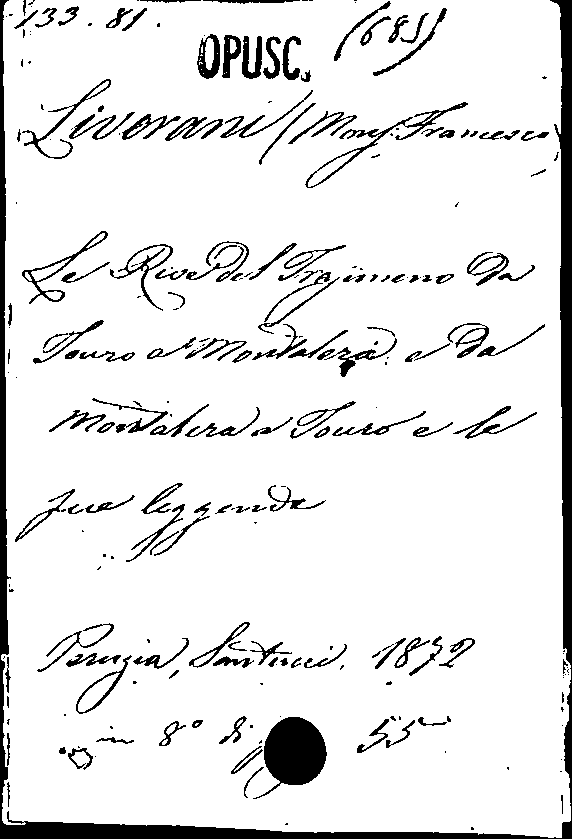 133.81.
OPUSC. (685)
Liverani (Mons. Francesco)
Le Rive del Trasimeno da
Touro a Montalera e da
Montalera a Touro e le
sue leggende
Perugia, Santucci. 1872
in 8° di 55